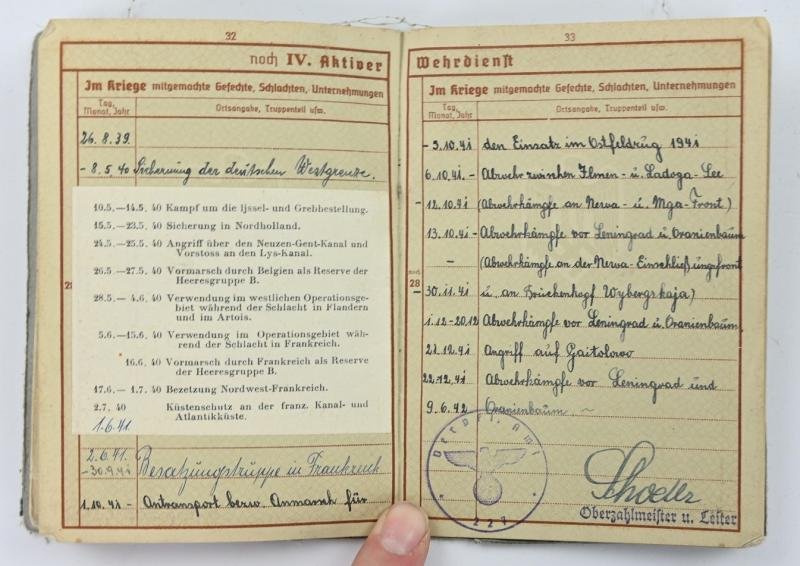 32
noch IV. Aktiver
Im Kriege mitgemachte Gefechte, Schlachten, Unternehmungen
Tag, Monat, Jahr
Ortsangabe, Truppenteil usw.
26.8.39
- 8.5.40 Sicherung der deutschen Westgrenze.
10.5.—14.5. 40 Kampf um die Ijssel- und Grebbestellung.
15.5.—23.5. 40 Sicherung in Nordholland.
24.5.—25.5. 40 Angriff über den Neuzen-Gent-Kanal und
Vorstoss an den Lys-Kanal.
26.5.—27.5. 40 Vormarsch durch Belgien als Reserve der
Heeresgruppe B.
28.5.— 4.6. 40 Verwendung im westlichen Operationsge-
biet während der Schlacht in Flandern
und im Artois.
5.6.—15.6. 40 Verwendung im Operationsgebiet wäh-
rend der Schlacht in Frankreich.
16.6. 40 Vormarsch durch Frankreich als Reserve
der Heeresgruppe B.
17.6.— 1.7. 40 Bezetzung Nordwest-Frankreich.
2.7. 40 Küstenschutz an der franz. Kanal- und
Atlantikküste.
1.6.41
2.6.41.
-30.9.41 Besatzungstruppe in Frankreich
1.10.41- Antransport bezw. Anmarsch für
33
Wehrdienst
Im Kriege mitgemachte Gefechte, Schlachten, Unternehmungen
Tag, Monat, Jahr
Ortsangabe, Truppenteil usw.
- 5.10.41 den Einsatz im Ostfeldzug 1941
6.10.41. - Abwehr zwischen Ilmen- u. Ladoga-See
- 12.10.41 (Abwehrkämpfe an Newa- u. Mga-Front)
13.10.41- Abwehrkämpfe vor Leningrad u. Oranienbaum
- (Abwehrkämpfe an der Newa-Einschließungsfront
28
- 30.11.41 u. an Brückenkopf Wybergskaja)
1.12-20.12 Abwehrkämpfe vor Leningrad u. Oranienbaum.
21.12.41 Angriff auf Gaitolowo
22.12.41 Abwehrkämpfe vor Leningrad und
9.6.42 Oranienbaum. ~
227
Oberzahlmeister u. Leiter